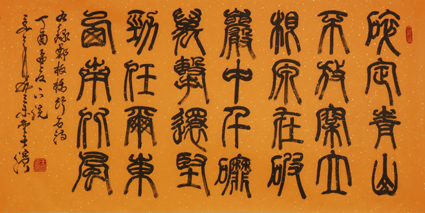 咬定青山
不放鬆立
根原在破
巖中千磨
萬擊還堅
勁任爾東
西南北風
右錄鄭板橋竹石詩
丁酉